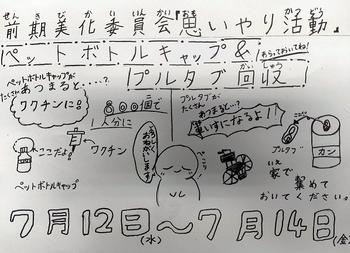 前期美化委員会『思いやり活動』
ペットボトルキャップ&
プルタブ回収!
あらっておいてね!
ペットボトルキャップが
たくさん
あつまると・・・・?
ワクチンに!
800個で
1人分に
ここだよ!
ワクチン
ペットボトルキャップ
よろしく
おねがいします
ペこっ
プルタブが
たくさん
あつまると・・・?
車いすになるよ!!
プルタブ
カン
家で
集めて
おいてください。
7月12日〜7月14日
(水)
(金)